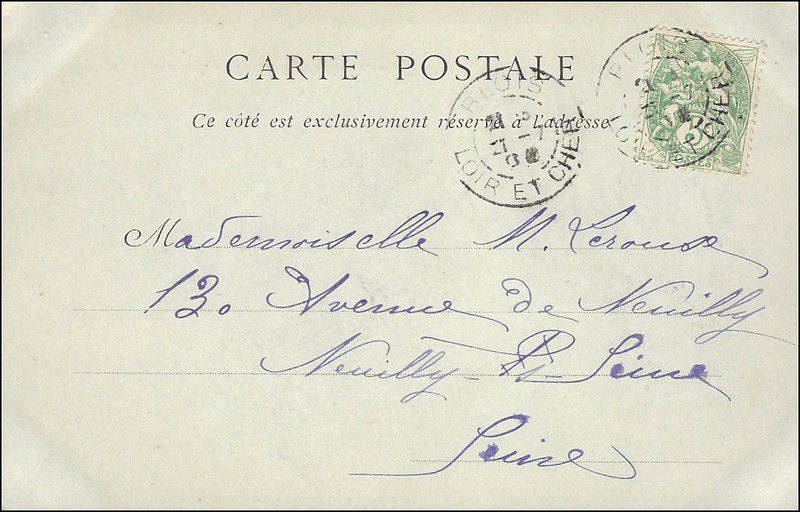 CARTE POSTALE
Ce côté est exclusivement réservé à l'adresse
BLOIS
LOIR ET CHER
Mademoiselle M. Leroux
130 Avenue de Neuilly
Neuilly Ps Seine
Seine